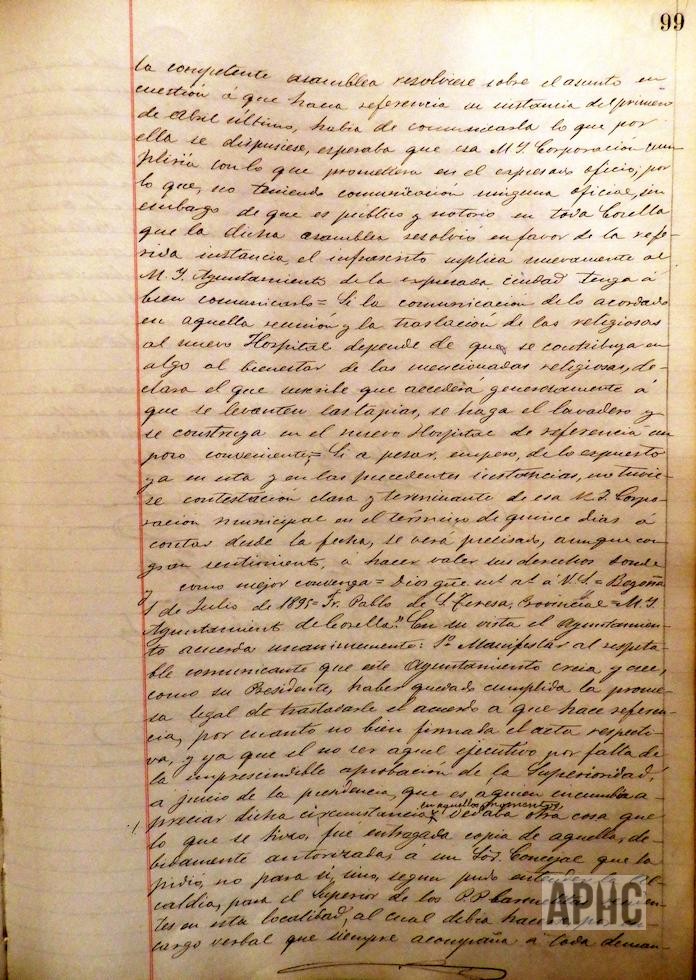 99
la competente asamblea resolviese sobre el asunto en
cuestión á que hacia referencia su instancia del primero
de Abril último, habia de comunicarla lo que por
ella se dispusiese, esperaba que esa M. Y. Corporacion cum
pliria con lo que prometiera en el expresado oficio; por
lo que, no teniendo comunicación ninguna oficial, sin
embargo de que es público y notorio en toda Corella
que la dicha asamblea resolvió en favor de la refe-
rida instancia, el infrascrito suplica nuevamente al
M. Y. Ayuntamiento de la expresada ciudad tenga á
bien comunicarlo = Si la comunicación de lo acordado
en aquella reunión y la traslación de las religiosas
al nuevo Hospital depende de que se contribuya en
algo al bienestar de las mencionadas religiosas, de-
clara el que suscribe que accederá generosamente á
que se levanten las tapias, se haga el lavadero y
se construya en el nuevo Hospital de referencia un
pozo conveniente = Si a pesar, empero, de lo expuesto
ya en esta y en las precedentes instancias, no tuvie-
se contestación clara y terminante de esa M. Y. Corpo-
ración municipal en el término de quince dias á
contar desde la fecha, se verá precisado, aunque con
gran sentimiento, á hacer valer sus derechos donde
y como mejor convenga = Dios gue. á V. S. = Begoña
1 de Julio de 1895 = Fr. Pablo de S. Teresa, Provincial = M. Y.
Ayuntamient. de Corella." En su vista el Ayuntamien-
to acuerda unanimemente: 1º Manifestar al respeta-
ble comunicante que este Ayuntamiento creia y cree,
como su Presidente, haber quedado cumplida la prome-
sa legal de trasladarle el acuerdo a que hace referen-
cia, por cuanto no bien firmada el acta respecti-
va, y ya que el no ser aquel ejecutivo por falta de
la imprescindible aprobación de la Superioridad,
á juicio de la presidencia, que es a quien incumbia a-
preciar dicha circunstancia en aquellos momentos, vedaba otra cosa que
lo que se hizo, fué entregada copia de aquella, de-
bidamente autorizada, á un Sor. Concejal que la
pidió, no para si, sino, segun pudo entender la Al-
caldia, para el Superior de los P.P. Carmelitas
tes en esta localidad, al cual debia
cargo verbal que siempre acompaña á toda deman-
APHC